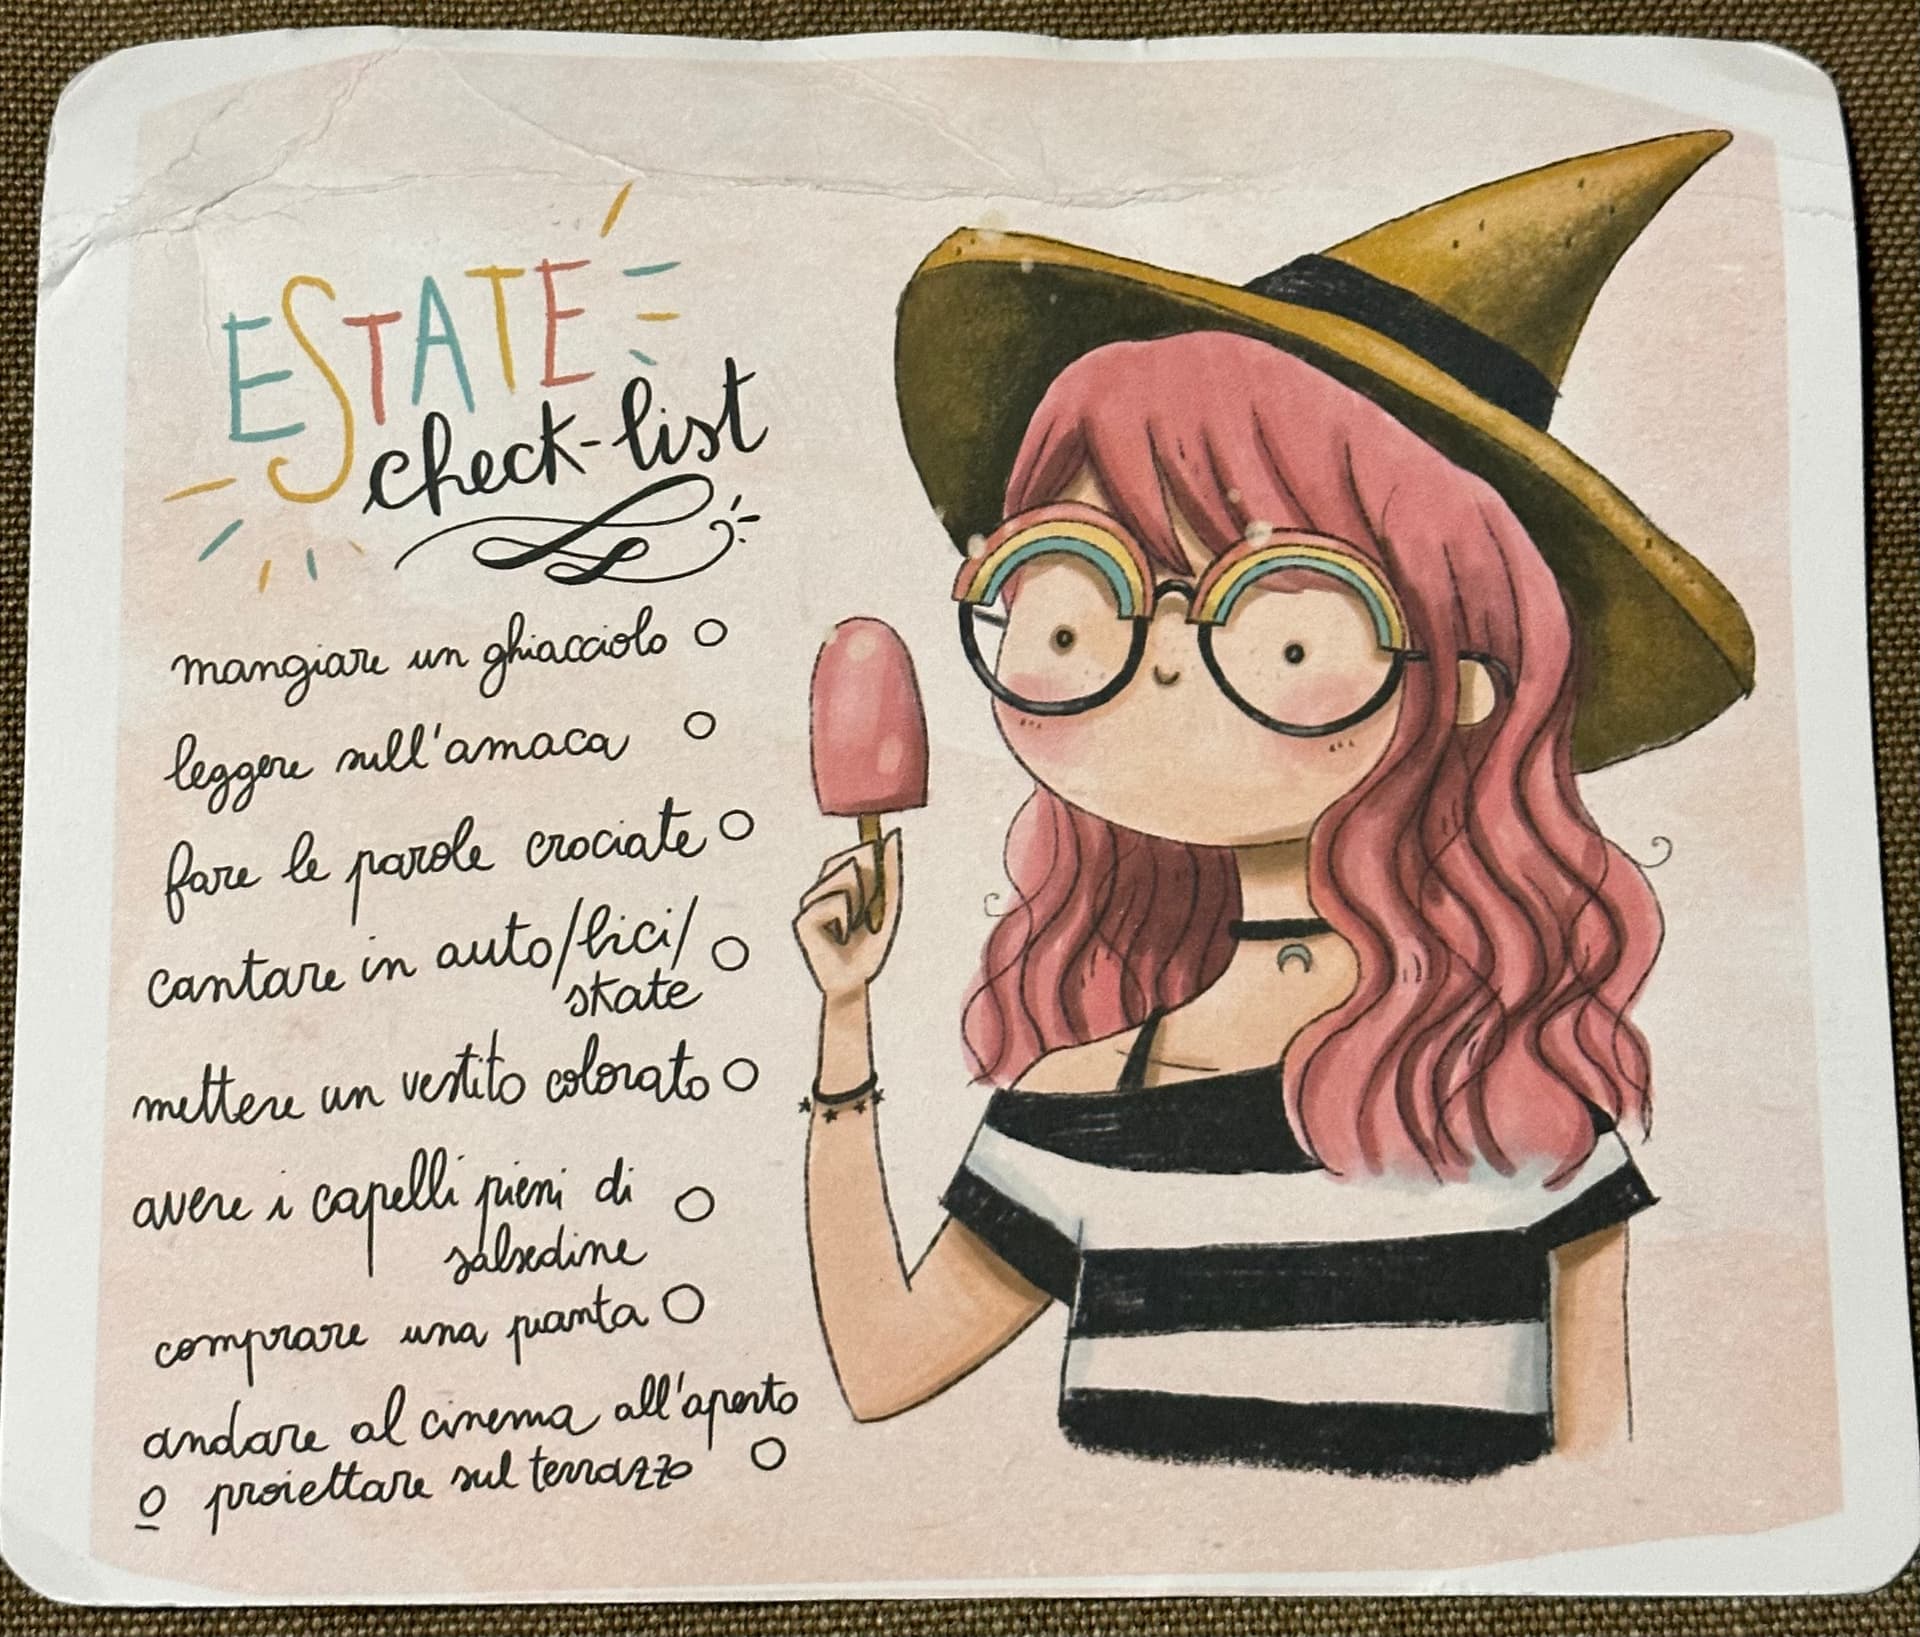 ESTATE
check-list
mangiare un ghiacciolo
leggere sull'amaca
fare le parole crociate
cantare in auto/bici/
skate
mettere un vestito colorato
avere i capelli pieni di
salsedine
comprare una pianta
andare al cinema all'aperto
o proiettare sul terrazzo